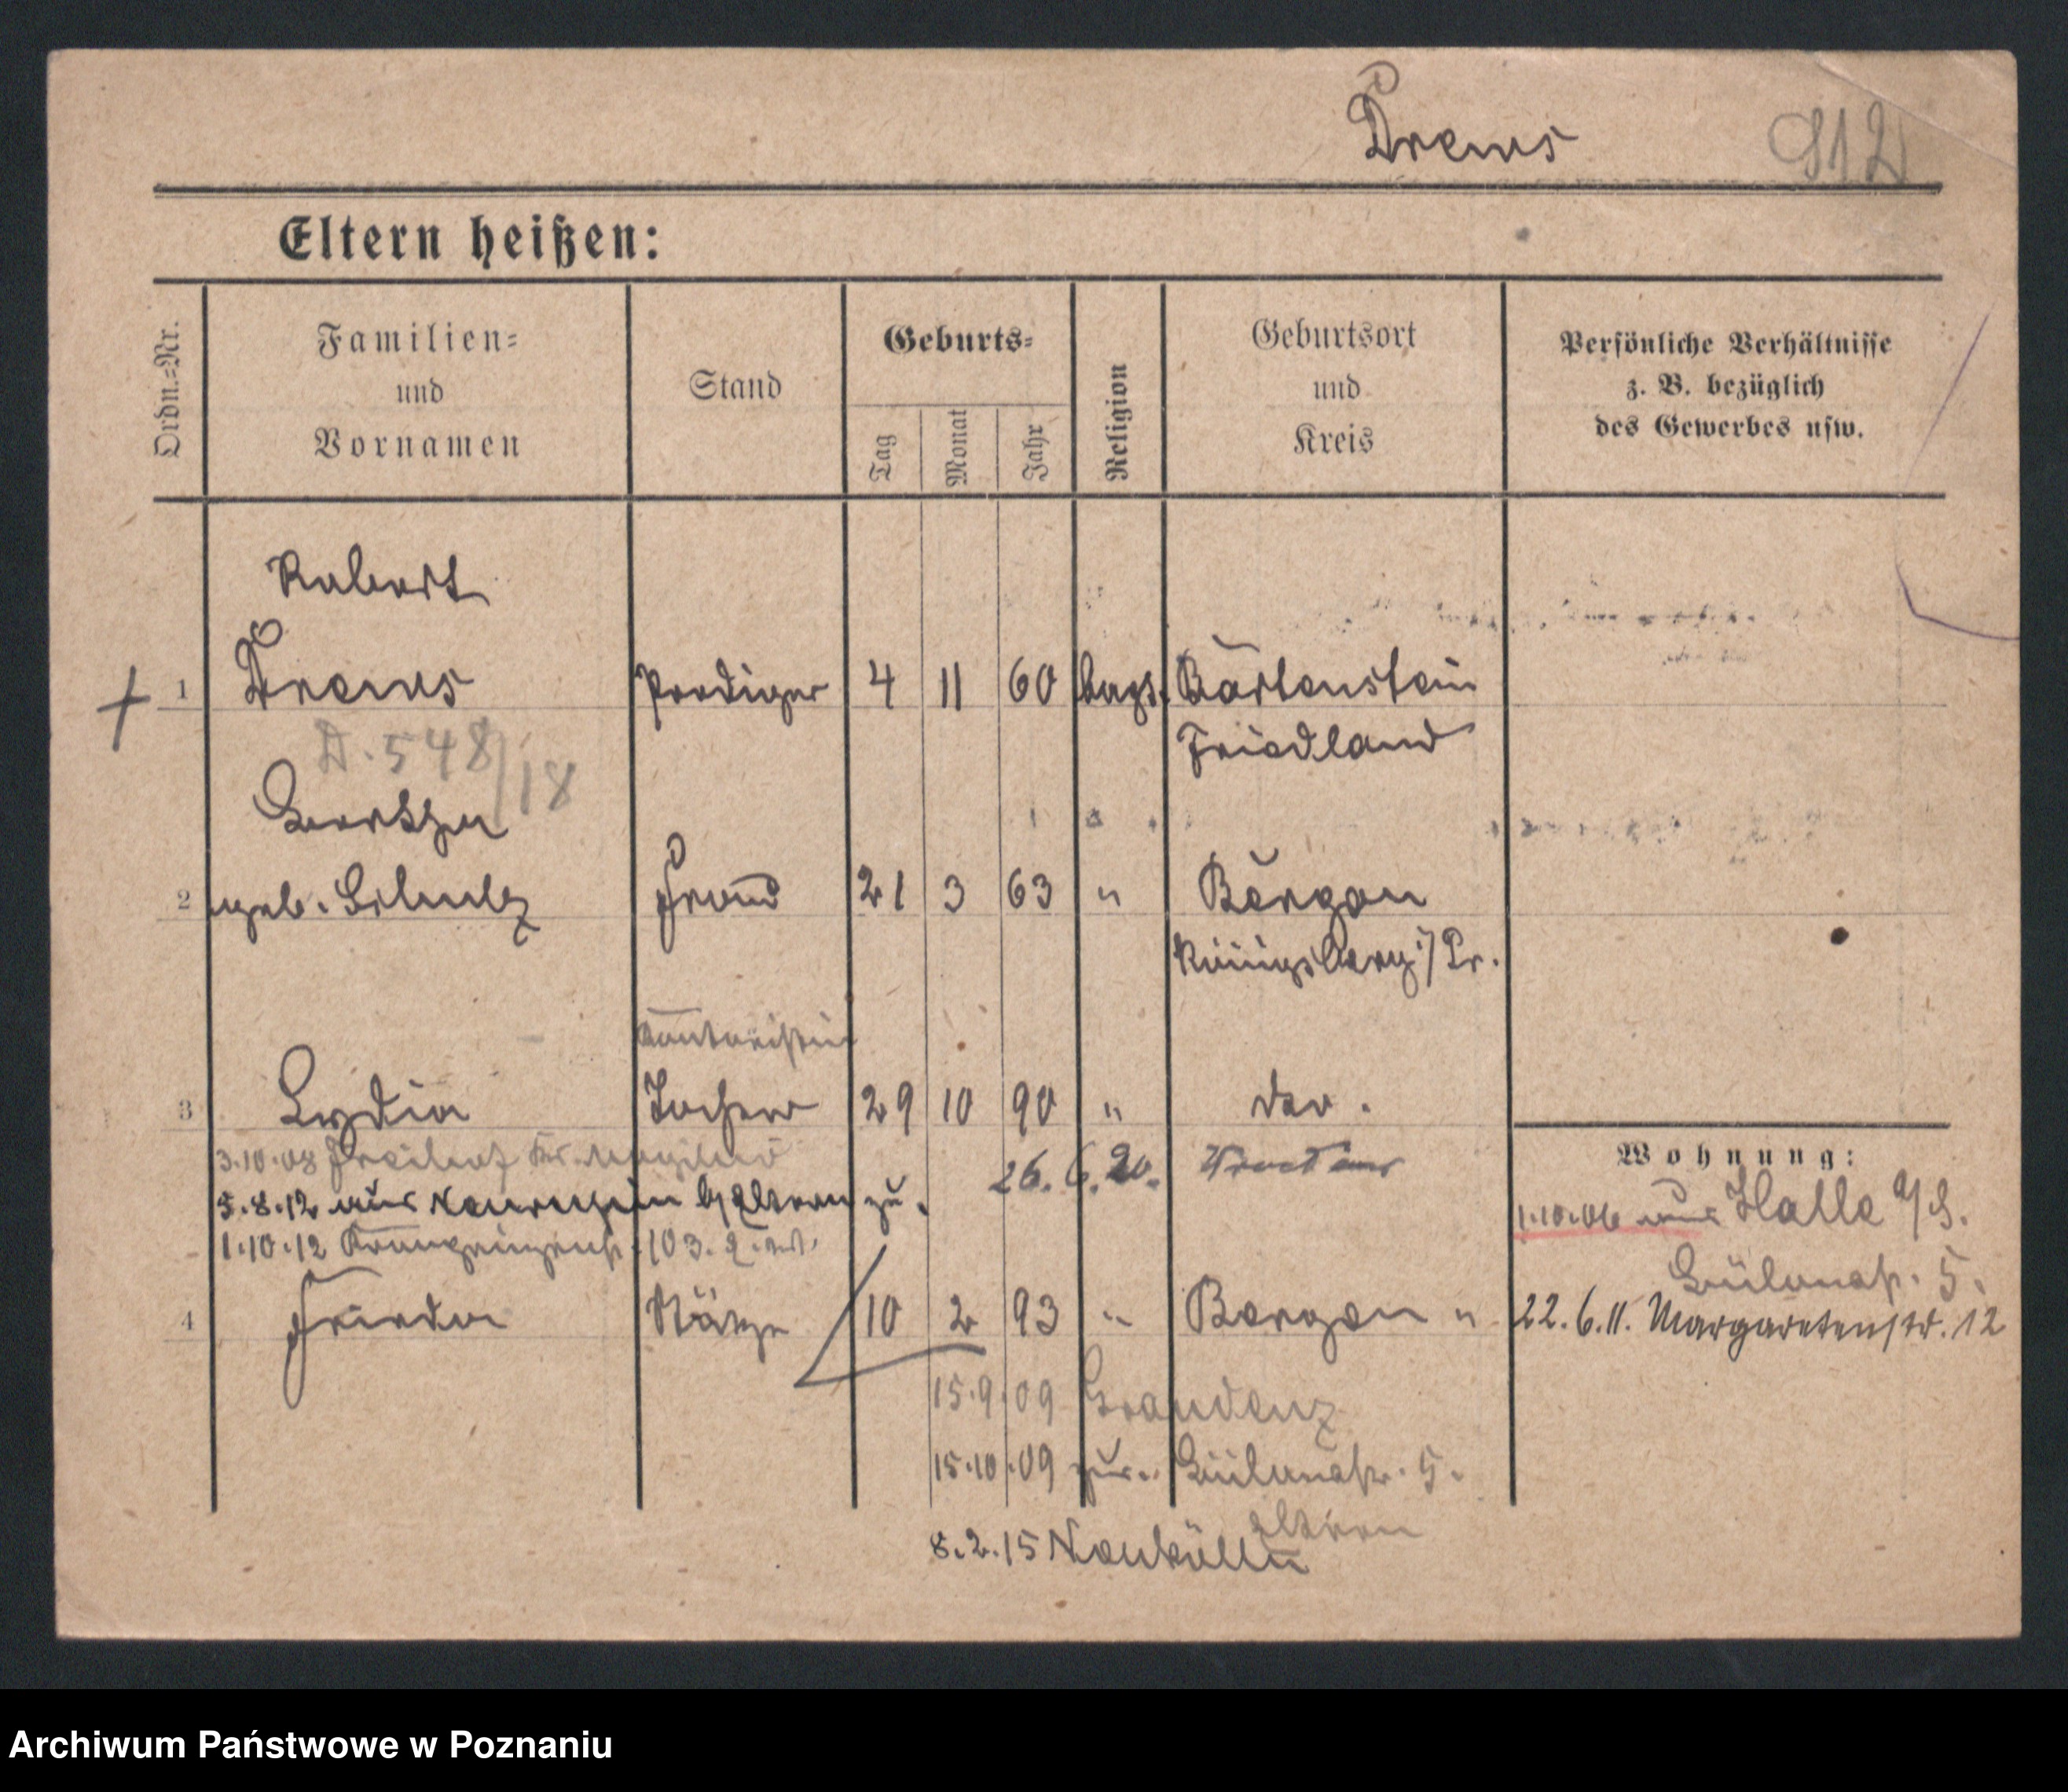 Drews 912
Eltern heißen:
Ordn.-Nr.
Familien-
und
Vornamen
Stand
Geburts-
Tag
Monat
Jahr
Religion
Geburtsort
und
Kreis
Persönliche Verhältnisse
z. B. bezüglich
des Gewerbes usw.
Robert
1 Drews Prediger 4 11 60 bapt. Bartenstein
D. 548/18 Friedland
Bertha
2 geb. Schulz Frau 21 3 63 " Bergau
Königsberg i/Pr.
Kontoristin
3 Lydia Tochter 29 10 90 " das.
3.10.08 Kr. Mogilno 26.6.20.
5.8.12 aus b/Eltern zu.
1.10.12 Kronprinzenstr. 103.
4 Frieda 10 2 93 " Bergau "
15.9.09 Graudenz
15.10.09 zur. Bülowstr. 5.
Eltern
8.2.15 Neukölln
Wohnung:
1.10.06 aus Halle a/S.
Bülowstr. 5.
22.6.11. Margaretenstr. 12
Archiwum Państwowe w Poznaniu